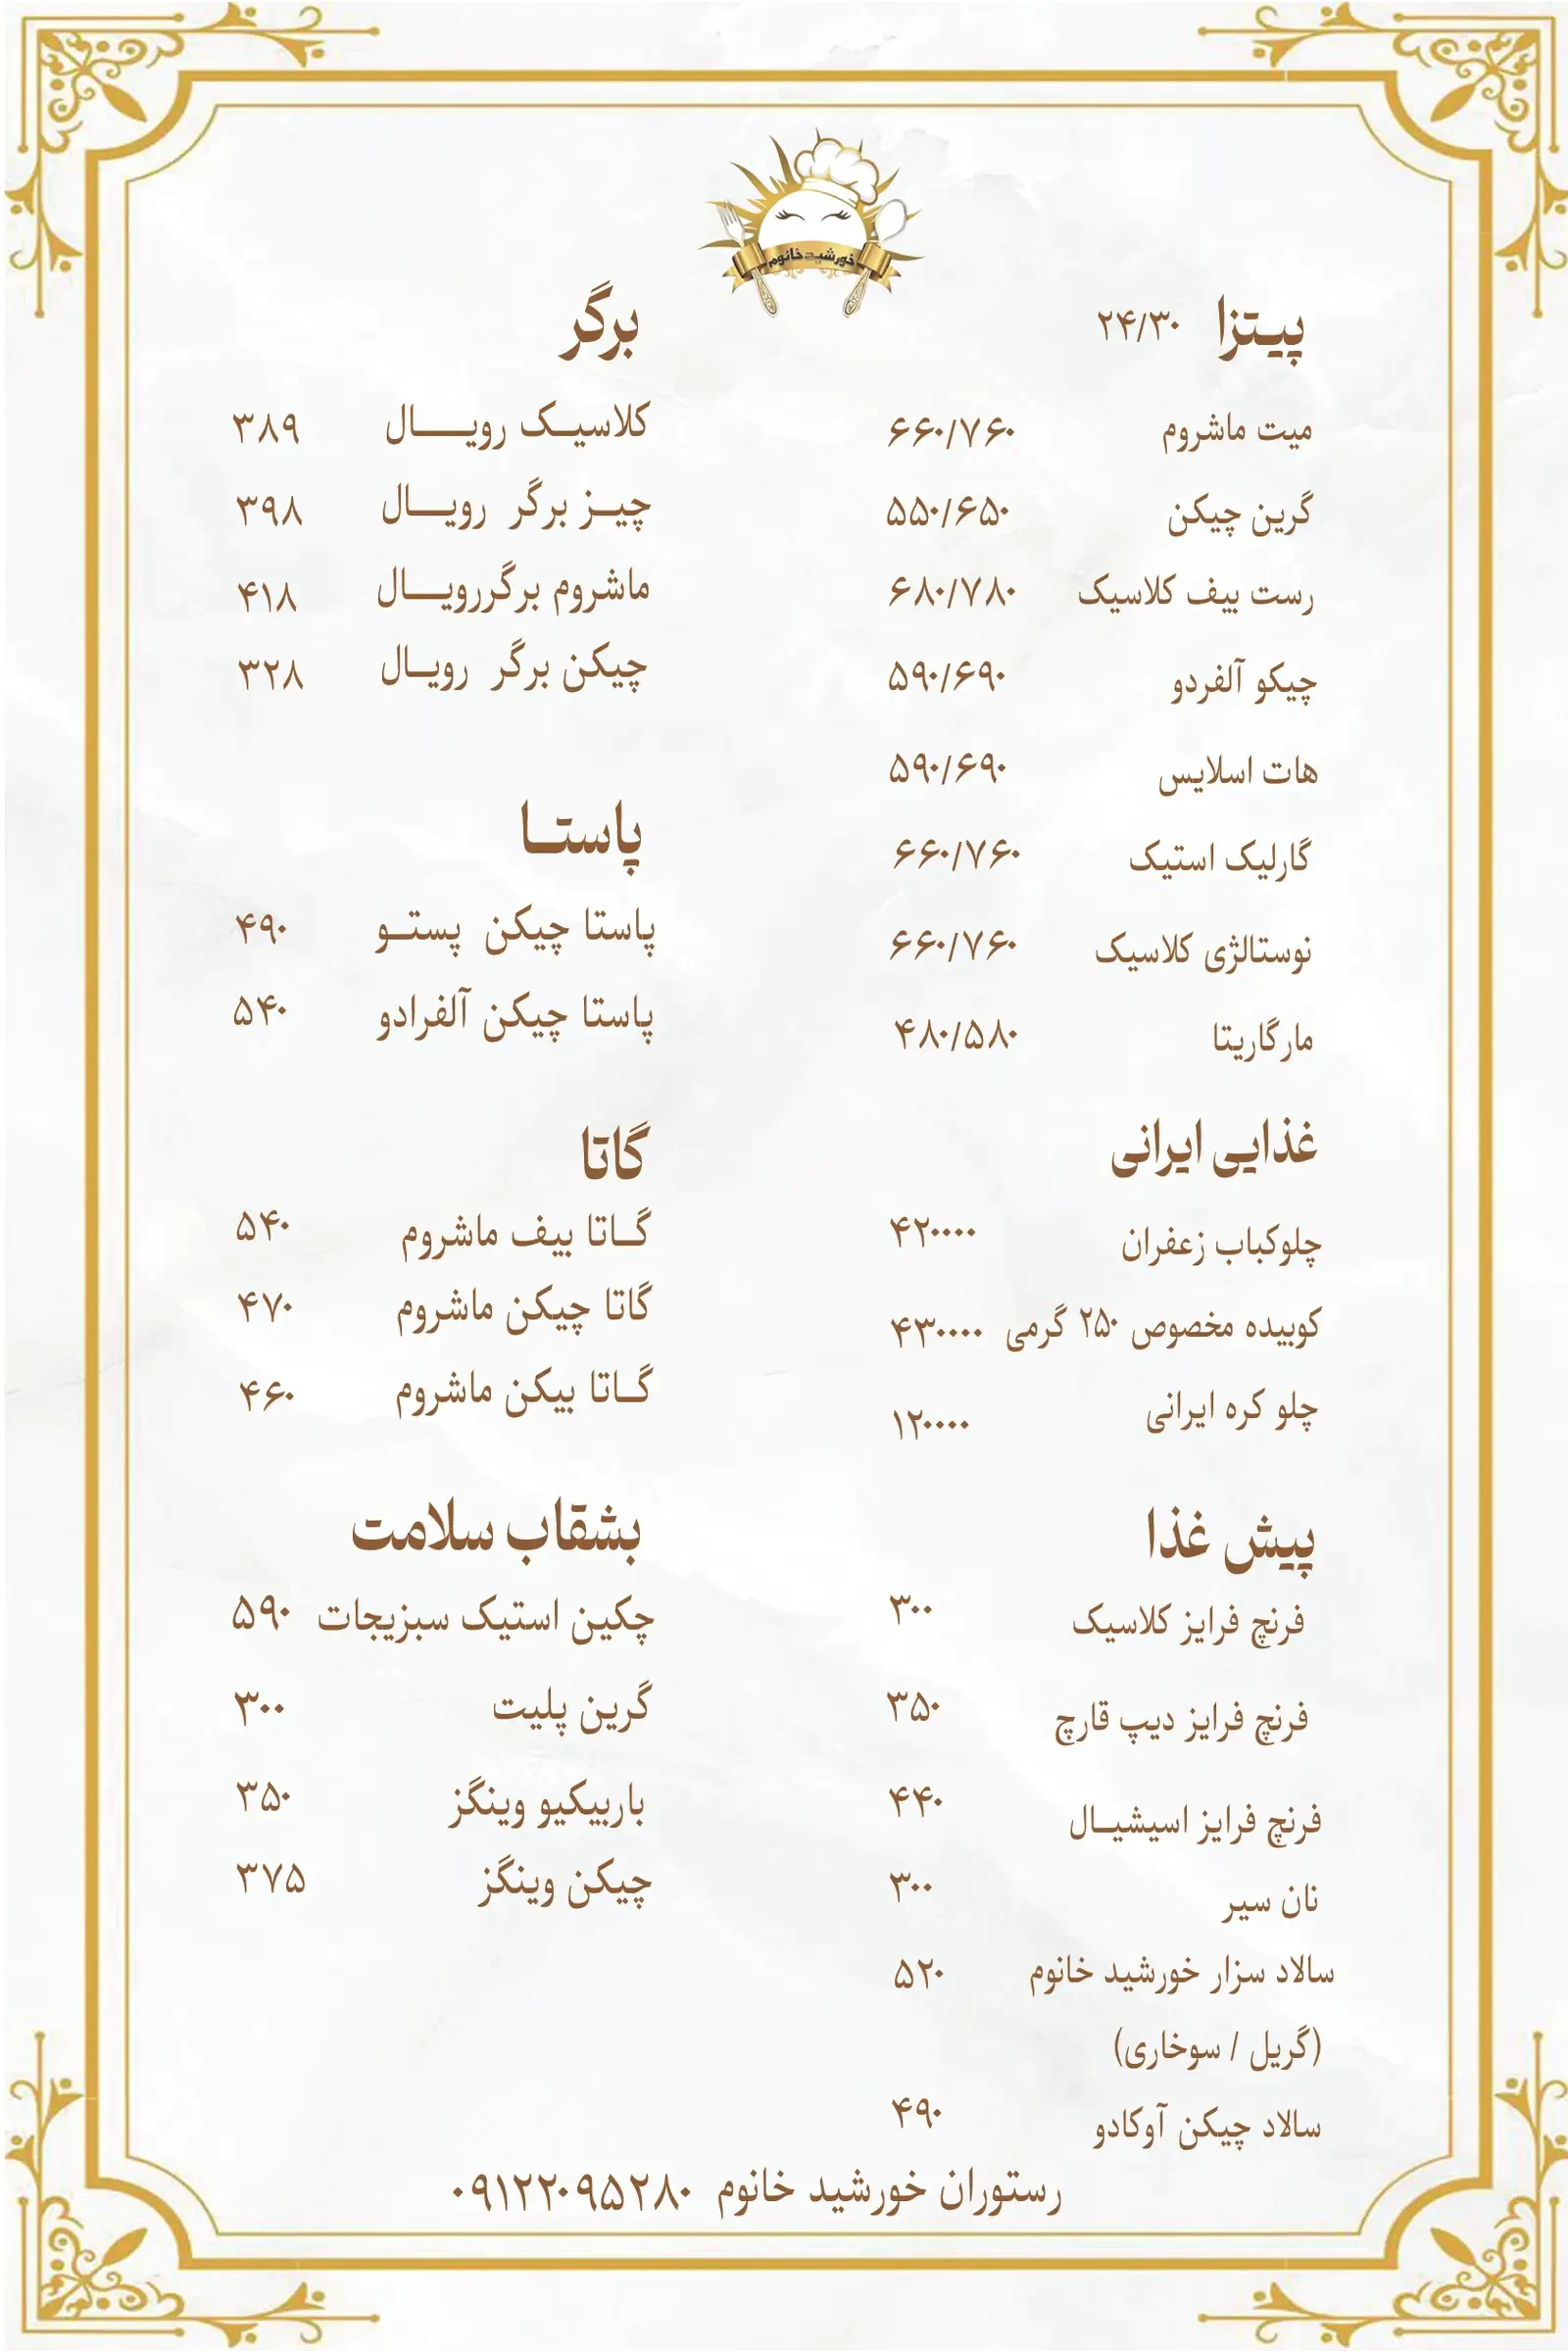 خورشید خانوم
پیتزا ۲۴/۳۰
میت ماشروم ۶۶۰/۷۶۰
گرین چیکن ۵۵۰/۶۵۰
رست بیف کلاسیک ۶۸۰/۷۸۰
چیکو آلفردو ۵۹۰/۶۹۰
هات اسلایس ۵۹۰/۶۹۰
گارلیک استیک ۶۶۰/۷۶۰
نوستالژی کلاسیک ۶۶۰/۷۶۰
مارگاریتا ۴۸۰/۵۸۰
غذایی ایرانی
چلوکباب زعفران ۴۲۰۰۰۰
کوبیده مخصوص ۲۵۰ گرمی ۴۳۰۰۰۰
چلو کره ایرانی ۱۲۰۰۰۰
پیش غذا
فرنچ فرایز کلاسیک ۳۰۰
فرنچ فرایز دیپ قارچ ۳۵۰
فرنچ فرایز اسیشیال ۴۴۰
نان سیر ۳۰۰
سالاد سزار خورشید خانوم ۵۲۰
(گریل / سوخاری)
سالاد چیکن آوکادو ۴۹۰
برگر
کلاسیک رویال ۳۸۹
چیز برگر رویال ۳۹۸
ماشروم برگررویال ۴۱۸
چیکن برگر رویال ۳۲۸
پاستا
پاستا چیکن پستو ۴۹۰
پاستا چیکن آلفرادو ۵۴۰
گاتا
گاتا بیف ماشروم ۵۴۰
گاتا چیکن ماشروم ۴۷۰
گاتا بیکن ماشروم ۴۶۰
بشقاب سلامت
چکین استیک سبزیجات ۵۹۰
گرین پلیت ۳۰۰
باربیکیو وینگز ۳۵۰
چیکن وینگز ۳۷۵
رستوران خورشید خانوم ۰۹۱۲۲۰۹۵۲۸۰